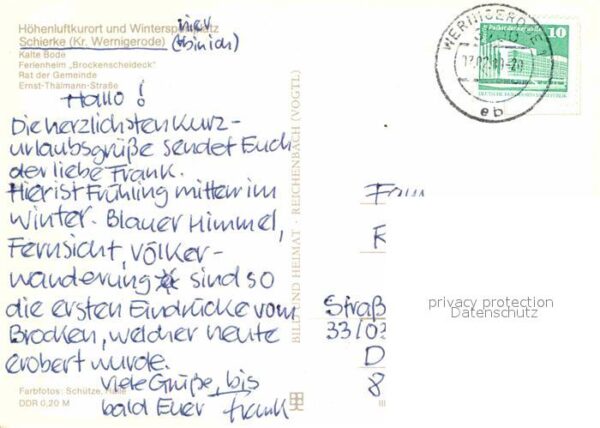 Höhenluftkurort und Wintersportplatz
Schierke (Kr. Wernigerode)
hier
(bin ich)
Kalte Bode
Ferienheim „Brockenscheideck"
Rat der Gemeinde
Ernst-Thälmann-Straße
Hallo!
Die herzlichsten Kurz-
urlaubsgrüße sendet Euch
der liebe Frank.
Hier ist Frühling mitten im
Winter. Blauer Himmel,
Fernsicht, Völker-
wanderung sind so
die ersten Eindrücke vom
Brocken, welcher heute
erobert wurde.
Viele Grüße, bis
bald Euer Frank
Farbfotos: Schütze, Halle
DDR 0,20 M
BILD UND HEIMAT · REICHENBACH (VOGTL)
WERNIGERODE
eb
10
Straß
33/03
D
8
privacy protection
Datenschutz